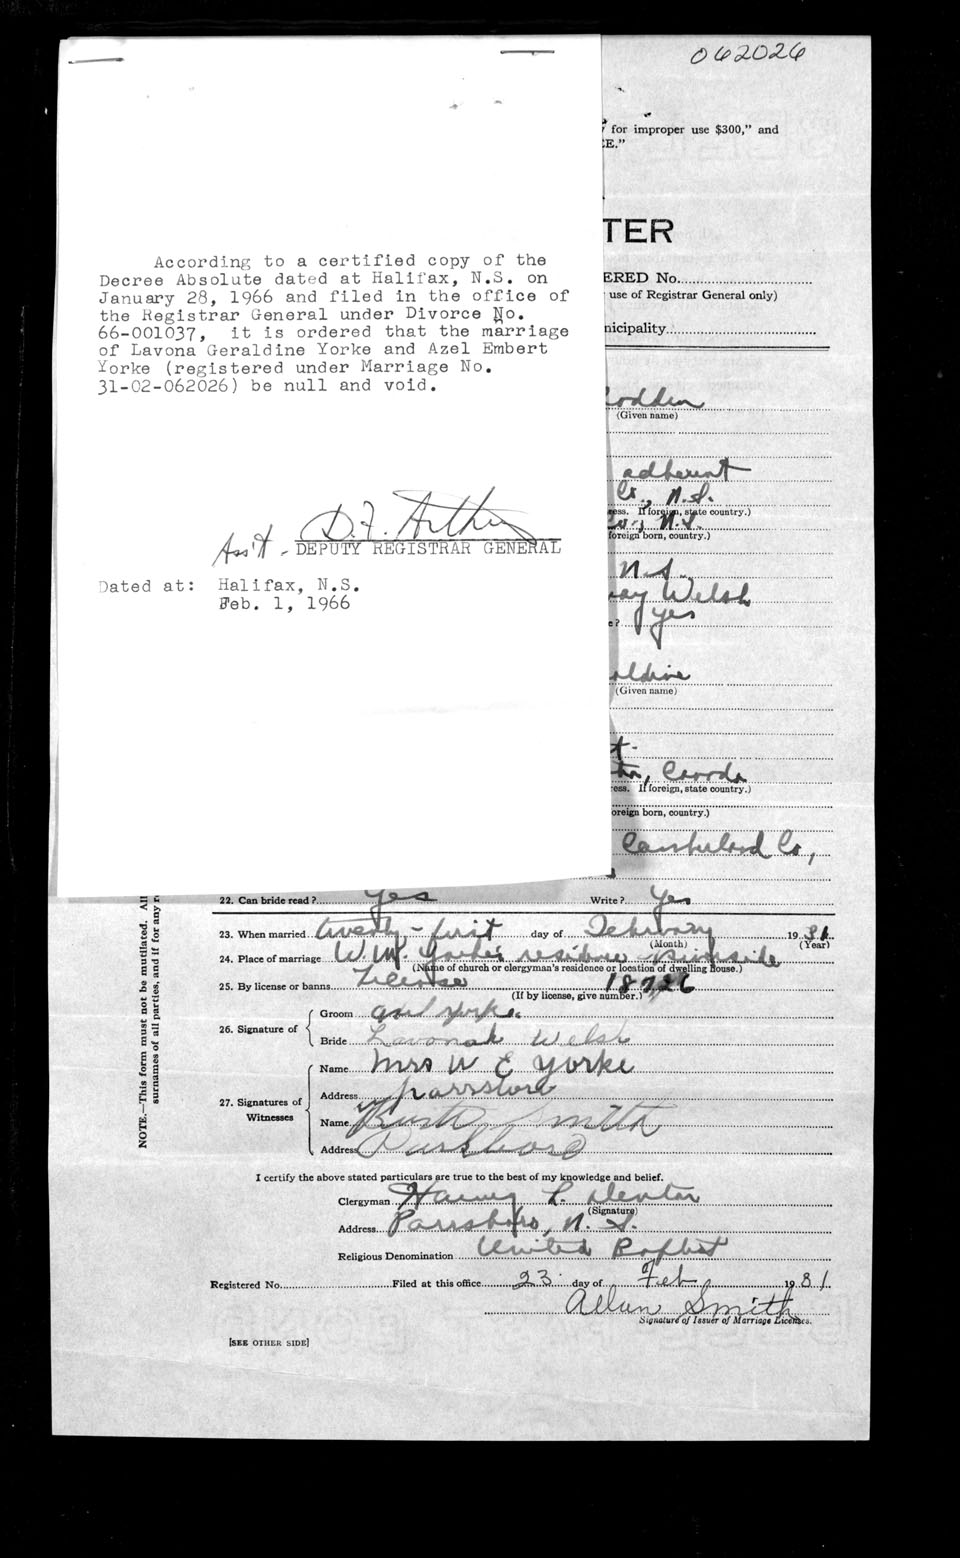 062026
for improper use $300," and
E."
TER
ERED No.
use of Registrar General only)
nicipality
According to a certified copy of the
Decree Absolute dated at Halifax, N.S. on
January 28, 1966 and filed in the office of
the Registrar General under Divorce No.
66-001037, it is ordered that the marriage
of Lavona Geraldine Yorke and Azel Embert
Yorke (registered under Marriage No.
31-02-062026) be null and void.
(Given name)
adherent
Co., N.S.
ess. If foreign, state country.)
Co., N.S.
foreign born, country.)
D.F.
Ass't - DEPUTY REGISTRAR GENERAL
N.S.
Dated at: Halifax, N.S.
Feb. 1, 1966
Welsh
e? yes
ldine
(Given name)
ess. If foreign, state country.)
oreign born, country.)
Cumberland Co,
22. Can bride read? Yes Write? Yes
23. When married twenty-first day of February 1931
(Month) (Year)
24. Place of marriage W.M. Yorke's residence
(Name of church or clergyman's residence or location of dwelling house.)
25. By license or banns License 18726
(If by license, give number.)
26. Signature of
Groom Yorke
Bride Lavonah Welsh
27. Signatures of Witnesses
Name Mrs W E Yorke
Address Parrsboro
Name Smith
Address Parrsboro
NOTE.—This form must not be mutilated. All
surnames of all parties, and if for any r
I certify the above stated particulars are true to the best of my knowledge and belief.
Clergyman Harvey L. Denton
(Signature)
Address Parrsboro, N.S.
Religious Denomination United Baptist
Registered No. Filed at this office 23 day of Feb 1931
Allan Smith
Signature of Issuer of Marriage Licenses.
[SEE OTHER SIDE]